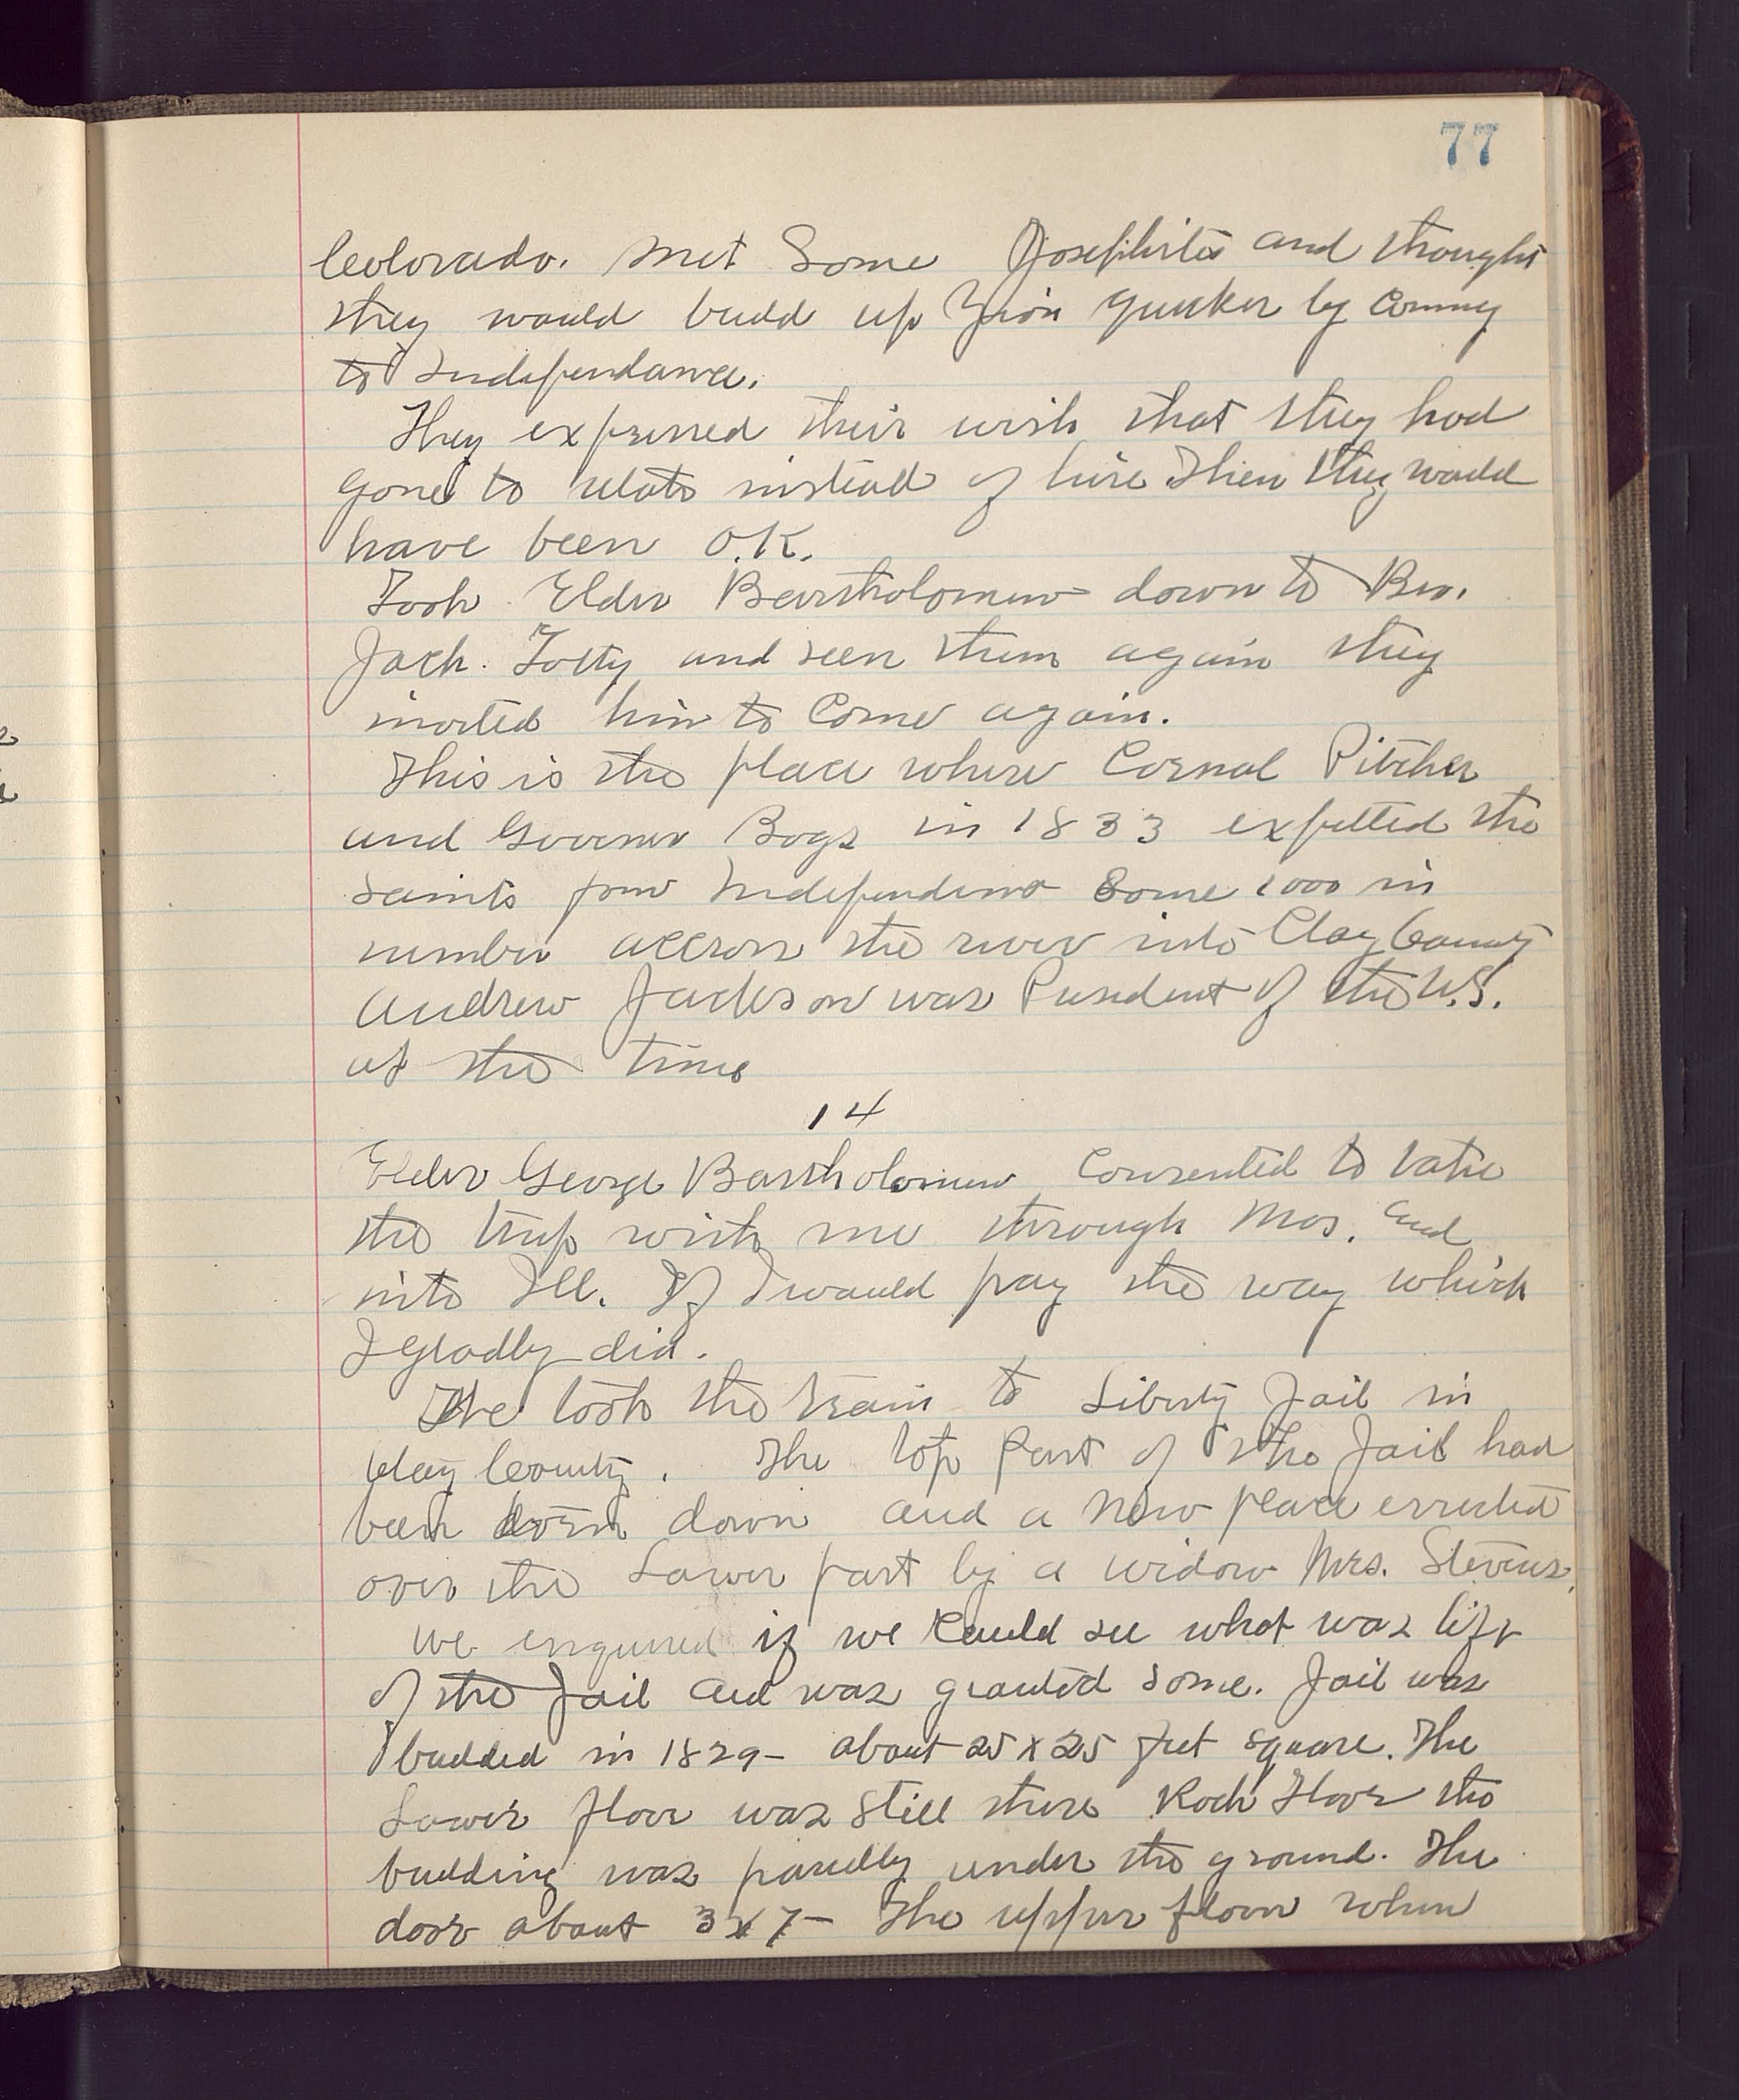 77
Colorado. Met Some Josephites and thought
they would budd up Zion quicker by coming
to Independance.
They expressed their wish that they had
gone to utah instead of hire Then they would
have been O.K.
Took Elder Bartholomew down to Bro.
Jack. Totty and seen them again they
invited him to Come again.
This is the place where Cornal Pitcher
and Govener Bogs in 1833 expelled the
saints from Independence Some 1000 in
number accross the river into Clay County
Andrew Jackson was President of the U.S.
at the time
14
Elder George Bartholomew Consented to take
the trip with me through Mos. and
into Ill. If I would pay the way which
I gladly did.
We took the train to Liberty Jail in
Clay County. The top part of the Jail had
been torn down and a New place errected
over the Lower part by a widow Mrs. Stevens.
We enquired if we Could see what was left
of the Jail and was granted some. Jail was
budded in 1829- about 25 x 25 feet square. The
Lower floor was still there Rock Floor the
budding was parcelly under the ground. The
door about 3x7- The upper floor when